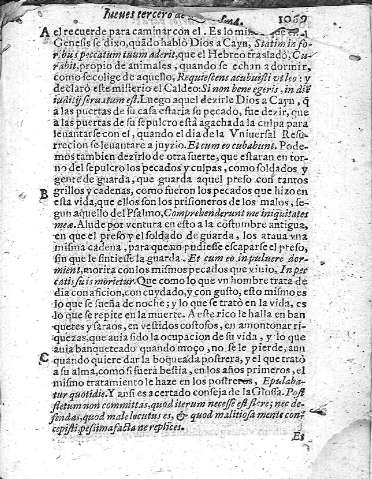 Jueves tercero de
1069
A el recuerde para caminar con el. Es lo mismo que en el
Genesis se dixo, quãdo hablò Dios a Cayn, Statim in fo-
ribus peccatum tuum aderit, que el Hebreo trasladò, Cu-
rabit, propio de animales, quando se echan a dormir,
como se colige de aquello, Requiescens acubuisti vt leo: y
declarò este misterio el Caldeo: Si non bene egeris, in diẽ
iudicij seruatum est. Luego aquel dezirle Dios a Cayn, q̃
a las puertas de su casa estaria su pecado, fue dezir, que
a las puertas de su sepulcro està agachada la culpa para
leuantarse con el, quando el dia de la Vniuersal Resu-
rrecion se leuantare a juyzio. Et cum eo cubabunt. Pode-
mos tambien dezirlo de otra suerte, que estaran en tor-
no del sepulcro los pecados y culpas, como soldados y
gente de guarda, que guarda aquel preso con tantos
B grillos y cadenas, como fueron los pecados que hizo en
esta vida, que ellos son las prisioneros de los malos, se-
gun aquello del Psalmo, Comprehenderunt me iniquitates
meæ. Alude por ventura en esto a la costumbre antigua,
en que el preso y el soldado de guarda, los ataua vna
misma cadena, para que no pudiesse escaparse el preso,
sin que le sintiesse la guarda. Et cum eo in puluere dor-
mient, morira con los mismos pecados que viuio. In pec-
catis suis morietur. Que como lo que vn hombre trata de
dia con aficion, con cuydado, y con gusto, esto mismo es
lo que se sueña de noche; y lo que se tratò en la vida, es
lo que se repite en la muerte. A este rico le halla en ban-
quetes y saraos, en vestidos costosos, en amontonar ri-
quezas, que auia sido la ocupacion de su vida, y lo que
auia banqueteado quando moço, no se le pierde, aun
C quando quiere dar la boqueada postrera, y el que tratò
a su alma, como si fuera bestia, en los años primeros, el
mismo tratamiento le haze en los postreros, Epulaba-
tur quotidie. Y ansi es acertado conseja de la Glossa. Post
fletum non committas, quod iterum necesse est flere; nec de-
fendas, quod male locutus es, & quod malitiosa mente con-
cepisti, pessima facta ne replices.
Es